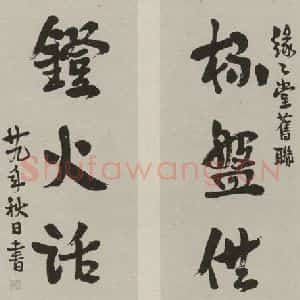 緣〻堂舊聯
杯盤供
鐙火话
廿九年秋日書
Shufawang.CN